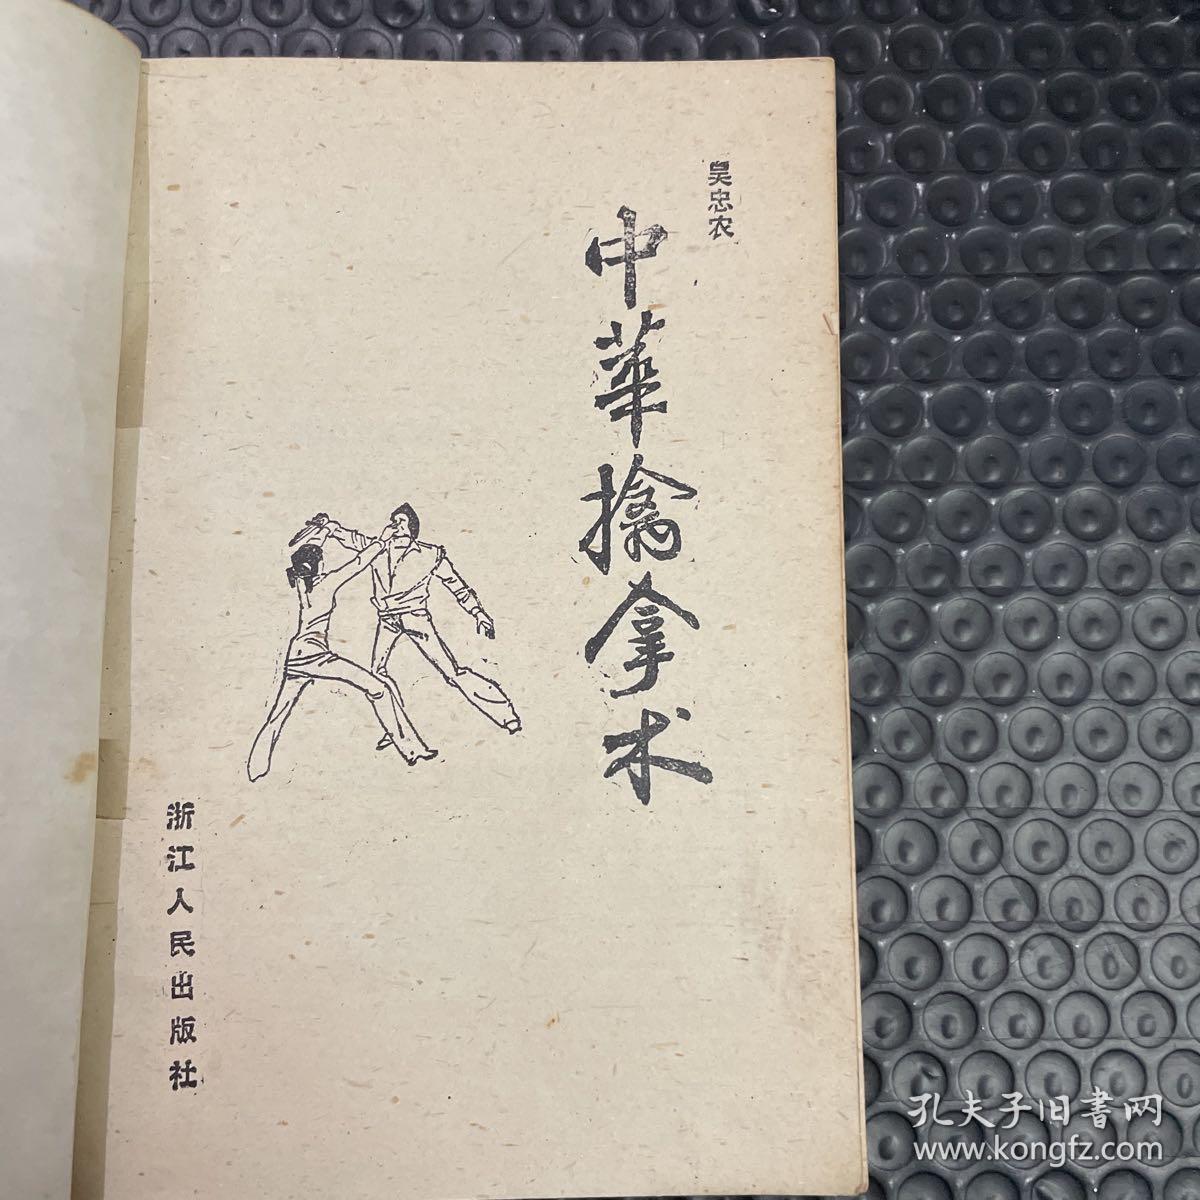 吴忠农
中華擒拿术
浙江人民出版社
孔夫子旧書网
www.kongfz.com